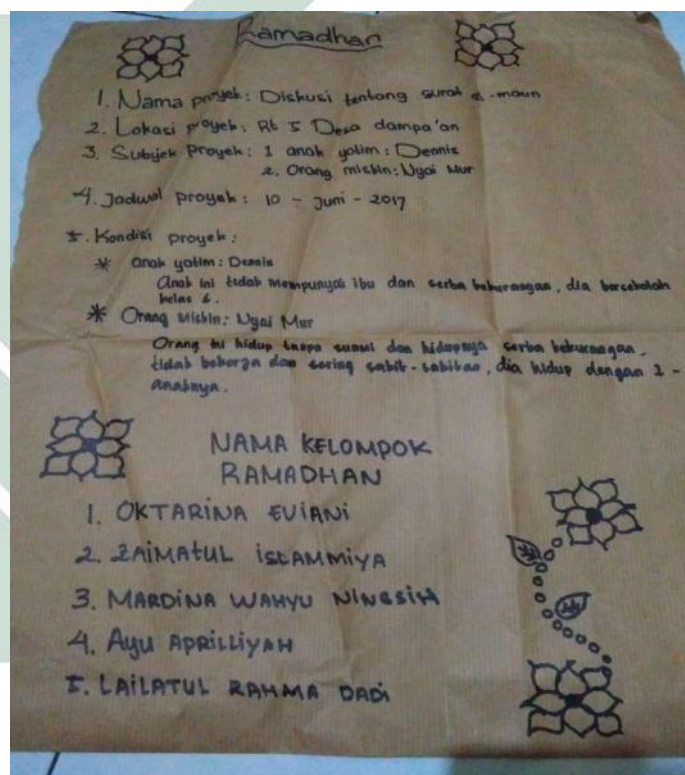 Ramadhan
1. Nama proyek: Diskusi tentang surat al-maun
2. Lokasi proyek: Rt 5 Desa dampa'an
3. Subyek Proyek: 1 anak yatim: Dennis
2. Orang miskin: Nyai Mur
4. Jadwal proyek: 10 - Juni - 2017
5. Kondisi proyek:
* anak yatim: Dennis
Anak ini tidak mempunyai ibu dan serba kekurangan, dia bersekolah
kelas 6.
* Orang miskin: Nyai Mur
Orang ini hidup tanpa suami dan hidupnya serba kekurangan,
tidak bekerja dan sering sakit-sakitan, dia hidup dengan 2 -
anaknya.
NAMA KELOMPOK
RAMADHAN
1. OKTARINA EVIANI
2. ZAIMATUL ISLAMMIYA
3. MARDINA WAHYU NINGSIH
4. Ayu APRILLIYAH
5. LAILATUL RAHMA DADI